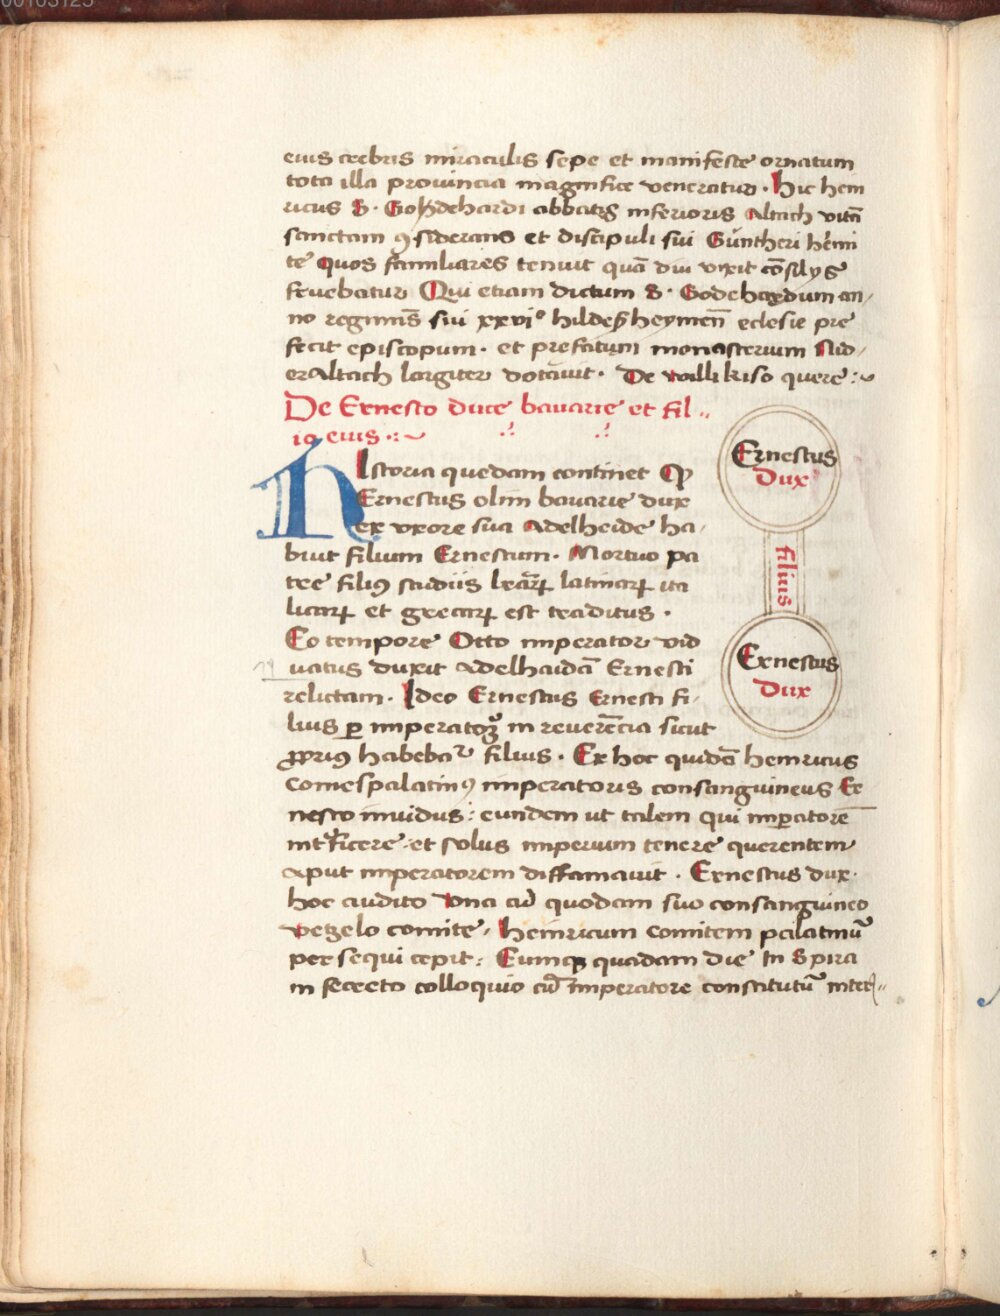 00103125
eius crebris miraculis sepe et manifeste ornatum
tota illa prouincia magnifice veneratur. Hic hein
ricus S. Gothdehardi abbatis inferioris Altach vitã
sanctam ꝯsiderans et discipuli sui Güntheri hẽmi
te Quos familiares tenuit quã diu vixit cõsilys
fruebatur Qui etiam dictum S. Godehardum an,
no regiminis sui xxvi° hildeßheymeñ eclesie pre
fecit episcopum. et prefatum monasterium Nid,
eraltach largiter dotauit. De willikiso quere :~
De Ernesto duce bauarie et fil..
iꝰ eius .:~
HIstoria quedam continet ꝙ
Ernestus olim bauarie dux
ex vxore sua Adelheide ha,
buit filium Ernestum. Mortuo pa
tre filiꝰ studiis lrãrꝝ latinarꝝ ita
licarꝝ et grecarꝝ est traditus.
Eo tempore Otto imperator vid
uatus duxit Adelhaidã Ernesti
relictam. Ideo Ernestus Ernesti fi-
lius ꝑ imperatorẽ in reuerẽcia sicut
ꝓpriꝰ habebaᵗ filius. Ex hoc quidã heinricus
Comespalatinꝰ imperatoris consanguineus Er
nesto inuidus: eundem ut talem qui impatorẽ
interficere et solus imperium tenere querentem
aput imperatorem diffamauit. Ernestus dux.
hoc audito Vna cũ quodam suo consanguineo
vetzelo comite, heinricum comitem palatinũ
persequi cepit: Eumqꝫ quadam die In Spira
in secreto colloquio cũ Imperatore constitutũ inter,,
Ernestus
Dux
filius
Ernestus
Dux